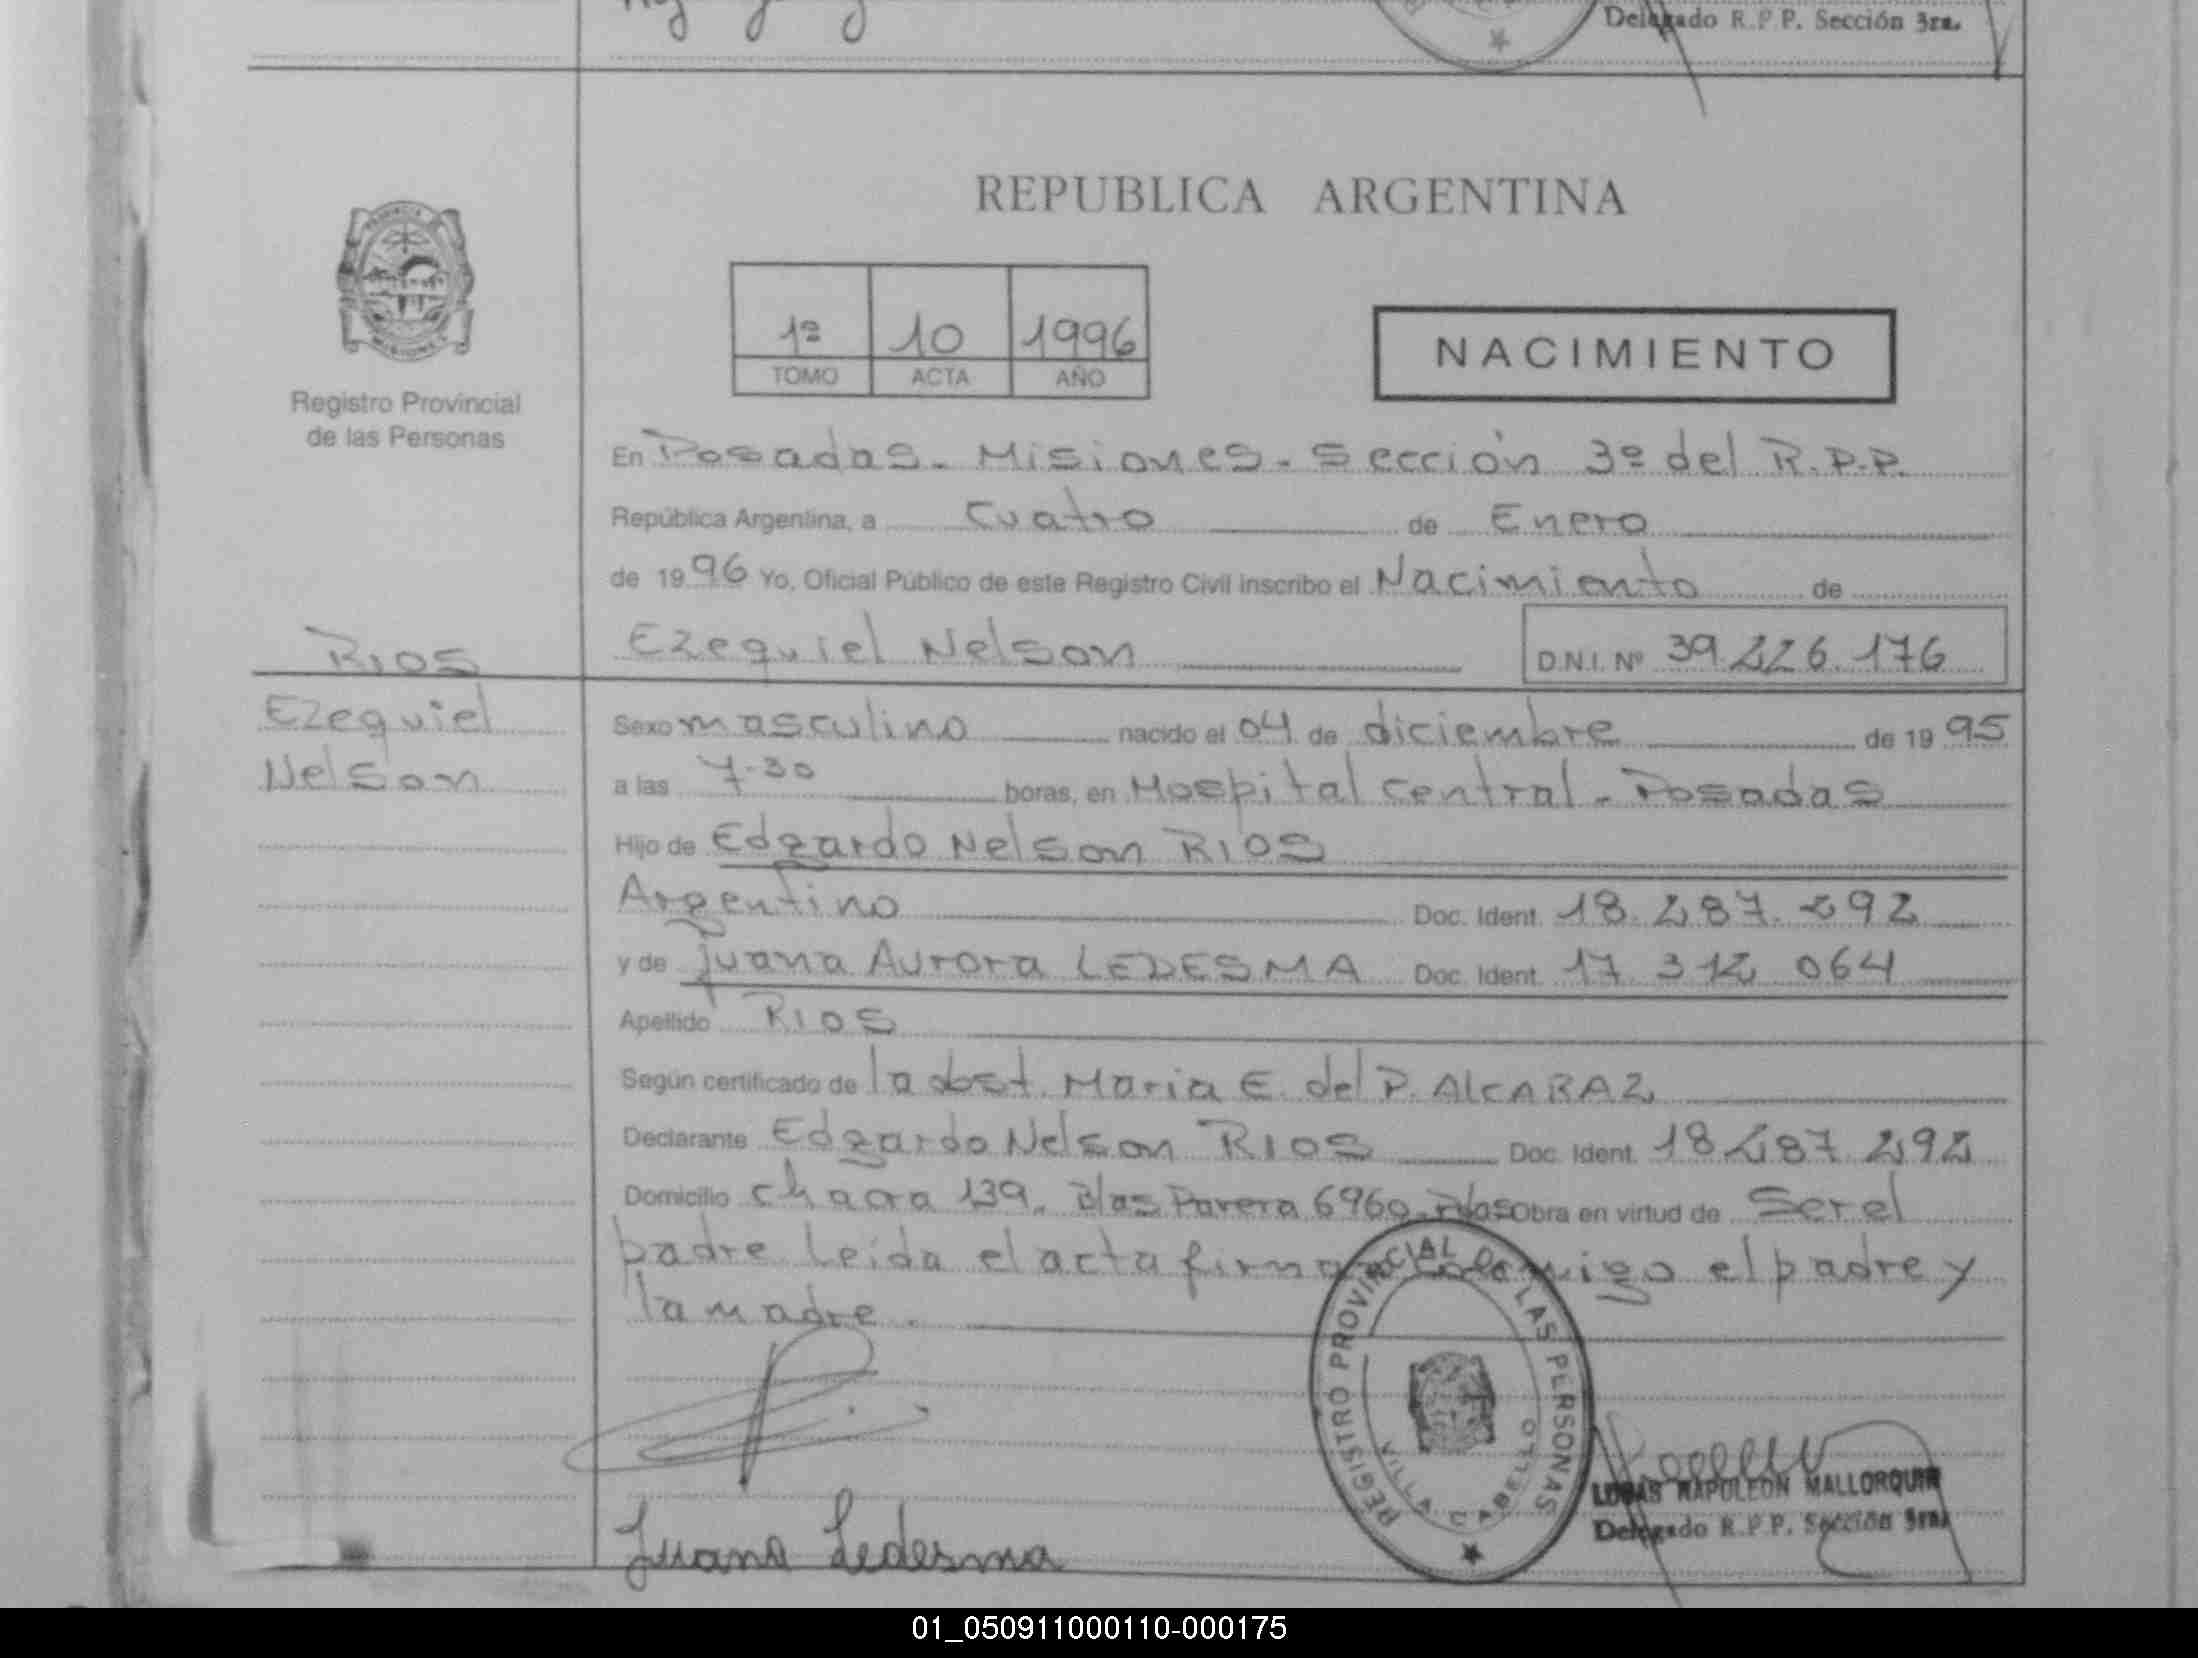 Delegado R.P.P. Sección 3ra.
REPUBLICA ARGENTINA
1º 10 1996
TOMO ACTA AÑO
NACIMIENTO
PROVINCIA
MISIONES
Registro Provincial
de las Personas
En Posadas. Misiones. Sección 3º del R.P.P.
República Argentina, a Cuatro de Enero
de 1996 Yo, Oficial Público de este Registro Civil inscribo el Nacimiento de
Ezequiel Nelson D.N.I. Nº 39.226.176
RIOS
Ezequiel
Nelson
Sexo masculino nacido el 04 de diciembre de 1995
a las 7.30 horas, en Hospital Central. Posadas
Hijo de Edgardo Nelson RIOS
Argentino Doc. Ident. 18.287.292
y de Juana Aurora LEDESMA Doc. Ident. 17 312 064
Apellido RIOS
Según certificado de la obst. Maria E. del P. ALCARAZ
Declarante Edgardo Nelson RIOS Doc. Ident. 18 287 292
Domicilio chacra 139. Blas Parera 6960. Pdas Obra en virtud de Ser el
padre Leída el acta firman conmigo el padre y
la madre.
REGISTRO PROVINCIAL DE LAS PERSONAS
VILLA CABELLO
LUCAS NAPOLEON MALLORQUIN
Delegado R.P.P. Sección 3ra.
Juana Ledesma
01_050911000110-000175